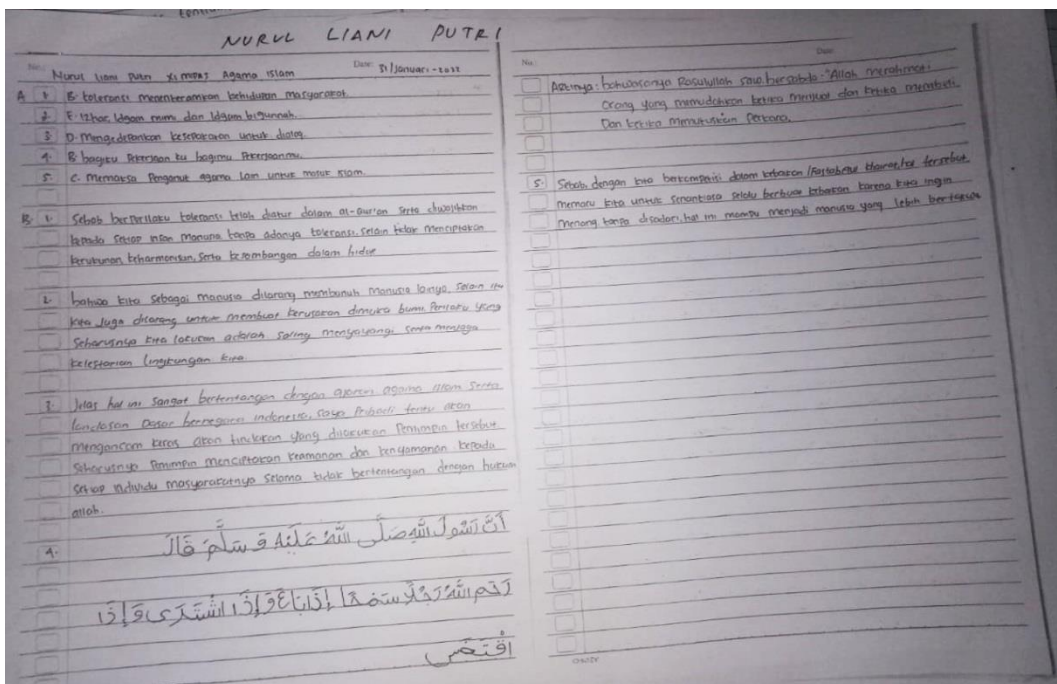 NURUL LIANI PUTRI
No.:
Date: 31/Januari-2022
Nurul Liani Putri XI MIPA5 Agama Islam
A 1. B. toleransi menenteramkan kehidupan masyarakat
2. E. Izhar, Idgam mimi dan Idgam bigunnah.
3. D. Mengedepankan kesepakatan untuk dialog.
4. B bagiku Pekerjaan ku bagimu Pekerjaanmu.
5. C. Memaksa Penganut agama lain untuk masuk Islam.
B. 1. Sebab berperilaku toleransi telah diatur dalam al-qur'an serta diwajibkan
kepada setiap insan manusia tanpa adanya toleransi, selain tidak menciptakan
kerukunan, keharmonisan, serta keseimbangan dalam hidup
2. bahwa kita sebagai manusia dilarang membunuh manusia lainya, selain itu
kita Juga dilarang untuk membuat kerusakan dimuka bumi. Perilaku yang
Seharusnya kita lakukan adalah saling menyayangi serta menjaga
kelestarian lingkungan kita.
3. Jelas hal ini sangat bertentangan dengan ajaran agama islam serta
landasan Dasar bernegara indonesia, saya Pribadi tentu akan
mengancam keras akan tindakan yang dilakukan Pemimpin tersebut
Seharusnya Pemimpin menciptakan keamanan dan kenyamanan kepada
setiap individu masyarakatnya selama tidak bertentangan dengan hukum
allah.
4. أَنَّ رَسُولَ اللَّهِ صَلَّى اللَّهُ عَلَيْهِ وَسَلَّمَ قَالَ
رَحِمَ اللَّهُ رَجُلًا سَمْحًا إِذَا بَاعَ وَإِذَا اشْتَرَى وَإِذَا
اقْتَضَى
No.:
Date:
Artinya: bahwasanya Rasulullah saw. bersabda: "Allah merahmati
Orang yang memudahkan ketika menjual dan ketika membeli,
Dan ketika memutuskan Perkara.
5. Sebab, dengan kita berkompetisi dalam kebaikan /Fastabiqul khairat, hal tersebut
memacu kita untuk senantiasa selalu berbuat kebaikan karena kita ingin
menang tanpa disadari, hal ini mampu menjadi manusia yang lebih bertakwa